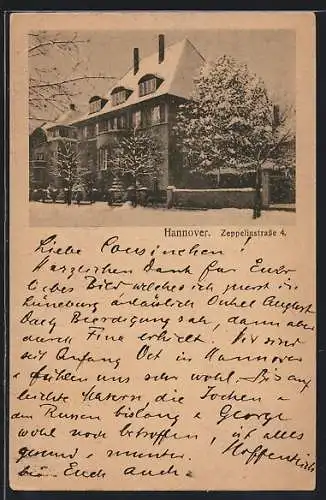 Hannover. Zeppelinstraße 4.
Liebe Cousinchen!
Herzlichen Dank für Euer
liebes Bild welches ich zuerst in
Lüneburg anlässlich Onkel August
Beerdigung sah, dann aber
durch Fine erhielt. Wir sind
seit Anfang Oct in Hannover
& fühlen uns sehr wohl. Bis auf
leichte Masern, die Jochen &
den Kleinen bislang & George
wohl noch betreffen, ist alles
gesund & munter. Hoffentlich
bei Euch auch.